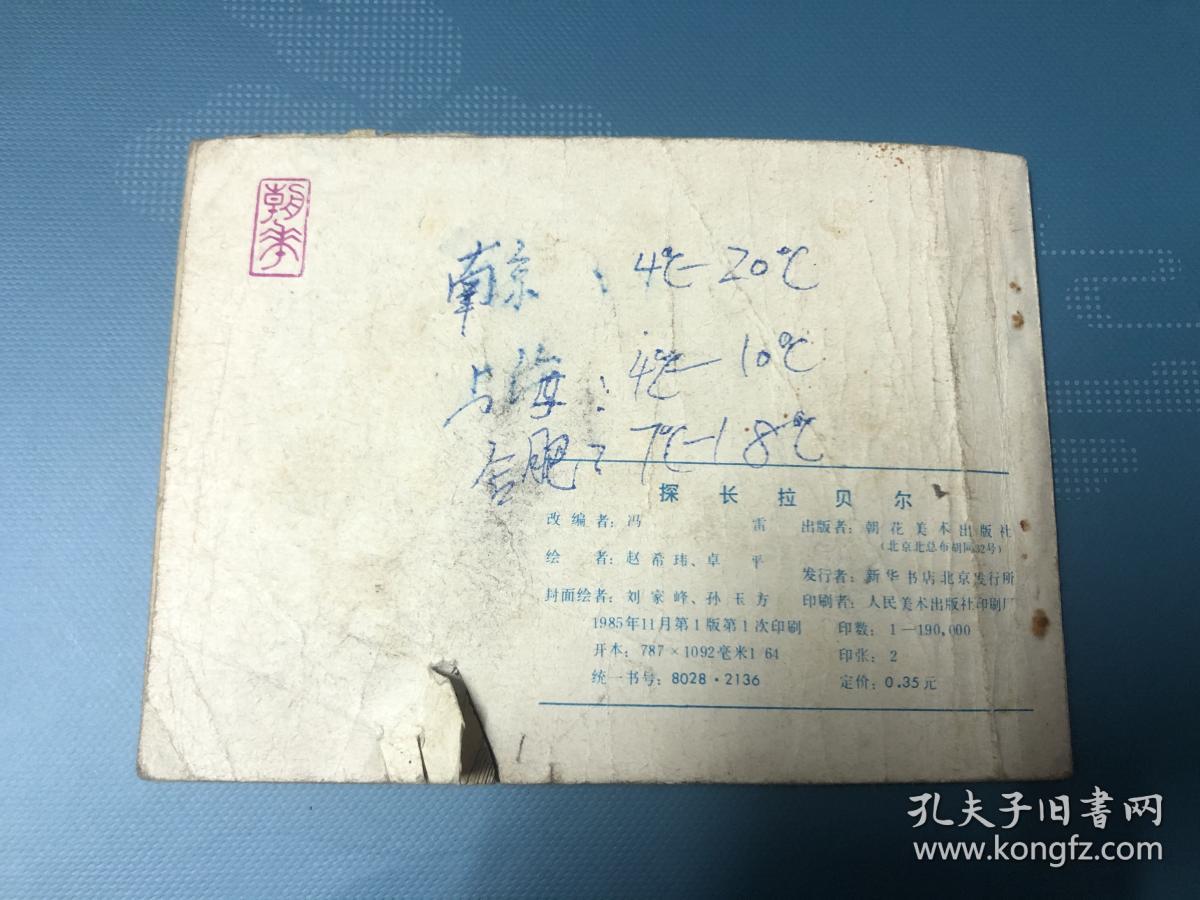 朝花
南京：4℃-20℃
上海：4℃-10℃
合肥：7℃-18℃
探长拉贝尔
改编者：冯雷 出版者：朝花美术出版社
（北京北总布胡同32号）
绘者：赵希玮、卓平
发行者：新华书店北京发行所
封面绘者：刘家峰、孙玉方 印刷者：人民美术出版社印刷厂
1985年11月第1版第1次印刷 印数：1—190,000
开本：787×1092毫米1 64 印张：2
统一书号：8028·2136 定价：0.35元
孔夫子旧書网
www.kongfz.com